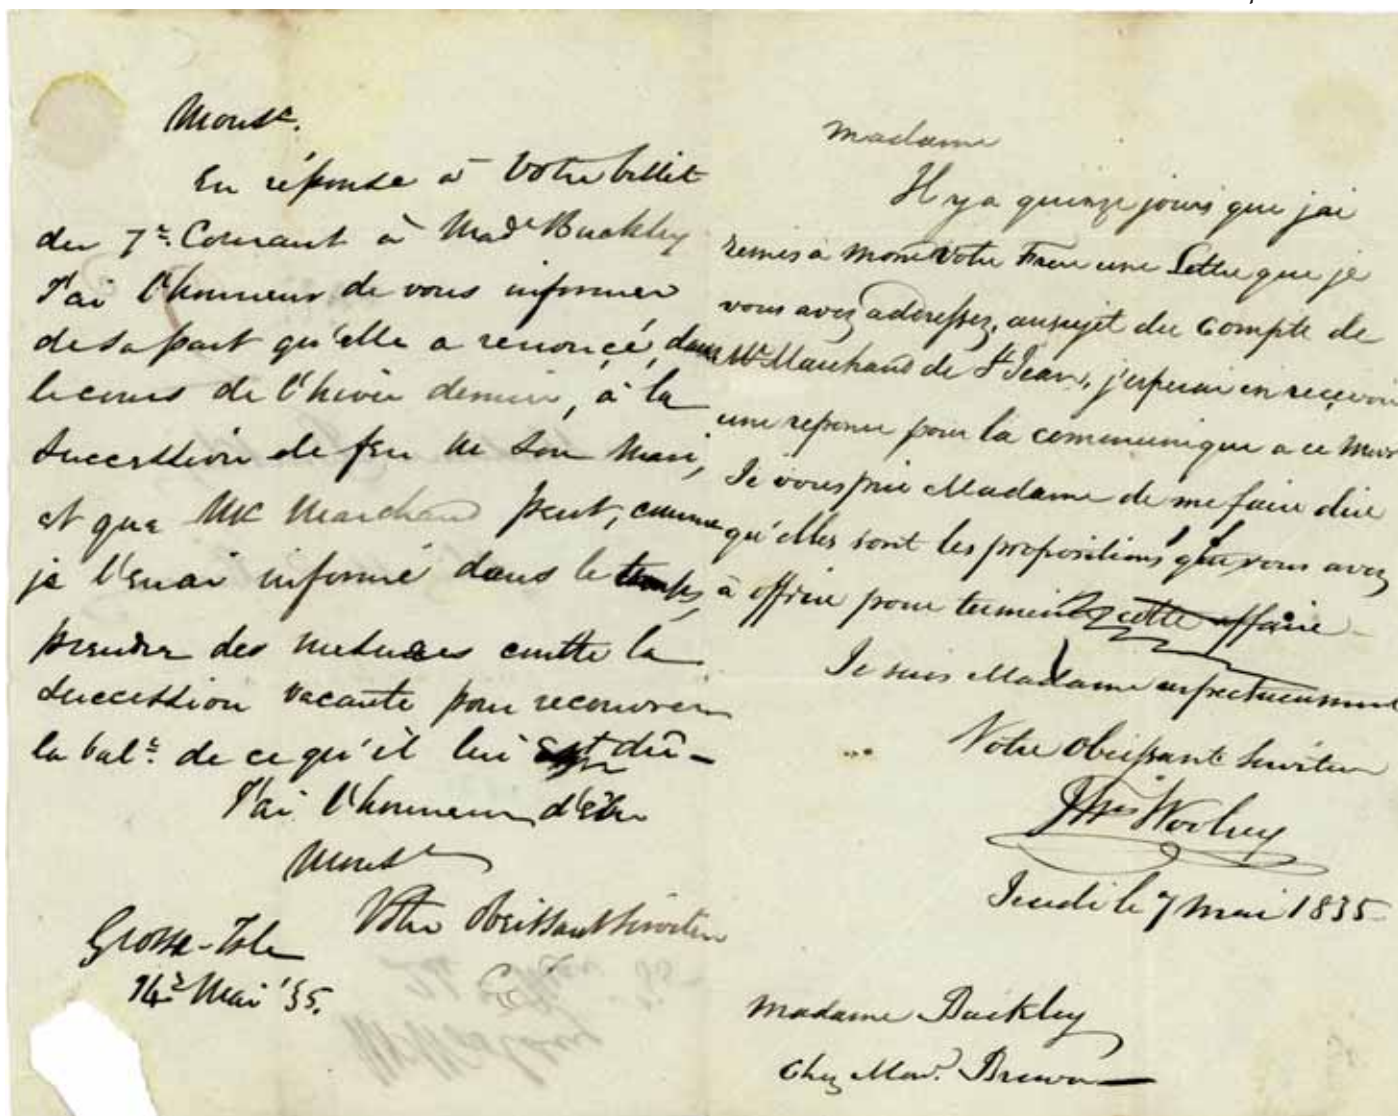 Monsr.
En réponse à Votre billet
du 7e. Courant à Made Buckley
J'ai l'honneur de vous informer
de sa part qu'elle a renoncé, dans
le cours de l'hiver dernier, à la
succession de feu M son Mari,
et que Mr Marchand peut, comme
je l'en ai informé dans le temps,
prendre des mesures contre la
succession vacante pour recouvrir
la bale. de ce qu'il lui est dû –
J'ai l'honneur d'être
Monsr
Votre Obéissant Serviteur
Grosse-Isle
14e Mai '35.
Madame
Il y a quinze jours que jai
remis a Monr Votre Frere une Lettre que je
vous avez adressez, au sujet du Compte de
Mr Marchand de St Jean, j'esperai en reçevoir
une reponse pour la communique a ce Monr
Je vous prie Madame de me faire dire
qu'elles sont les propositions que vous avez
à offrire pour terminer cette affaire
Je suis Madame respectueusement
Votre Obeissant Serviteur
Woolsey
Jeudi le 7 Mai 1835
Madame Buckley
Chez Mad. Brown